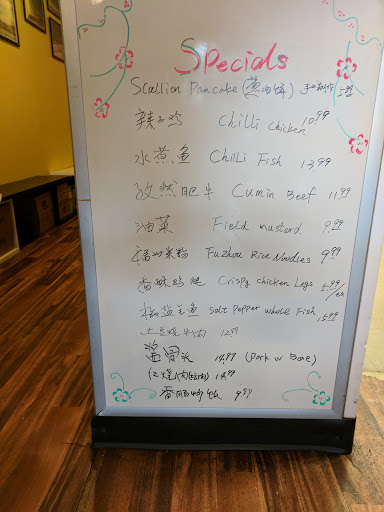 Specials
Scallion Pancake (葱油饼) 手工制作 5.99
辣子鸡 Chilli Chicken 10.99
水煮鱼 Chilli Fish 13.99
孜然肥牛 Cumin Beef 11.99
油菜 Field mustard 9.99
福州米粉 Fuzhou Rice Noodles 9.99
香酥鸡腿 Crispy chicken Legs 5.99/ea
椒盐全鱼 Salt Pepper whole Fish 15.99
土豆烧牛肉 12.99
酱骨头 14.99 (Pork w Bone)
红烧肉 14.99
香肠炒饭 9.99